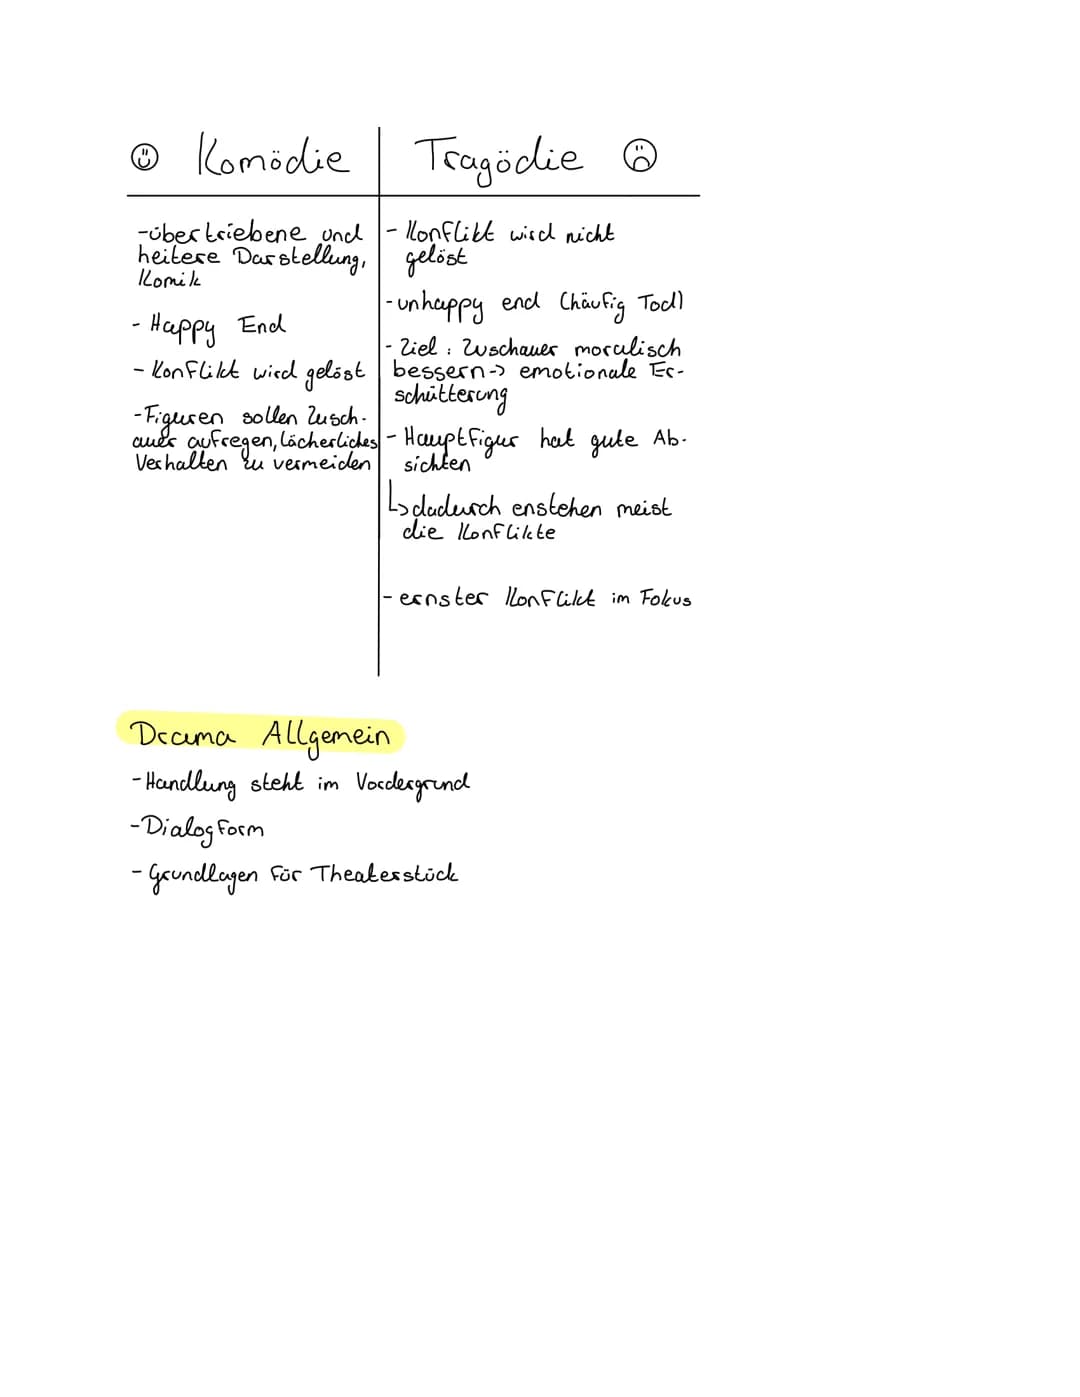 Komödie
-übertriebene und
heitere Darstellung,
Komik
- Happy End
- Konflikt wird gelöst
-Figuren sollen Zusch-
auer aufregen, lächerliches
Verhalten zu vermeiden
Tragödie
- Konflikt wird nicht
gelöst
-unhappy end (häufig Tod)
- Ziel: Zuschauer moralisch
bessern-> emotionale Er-
schütterung
- Hauptfigur hat gute Ab-
sichten
↳dadurch enstehen meist
die Konflikte
- ernster Konflikt im Fokus
Drama Allgemein
-Handlung steht im Vordergrund
-Dialogform
- Grundlagen für Theaterstück